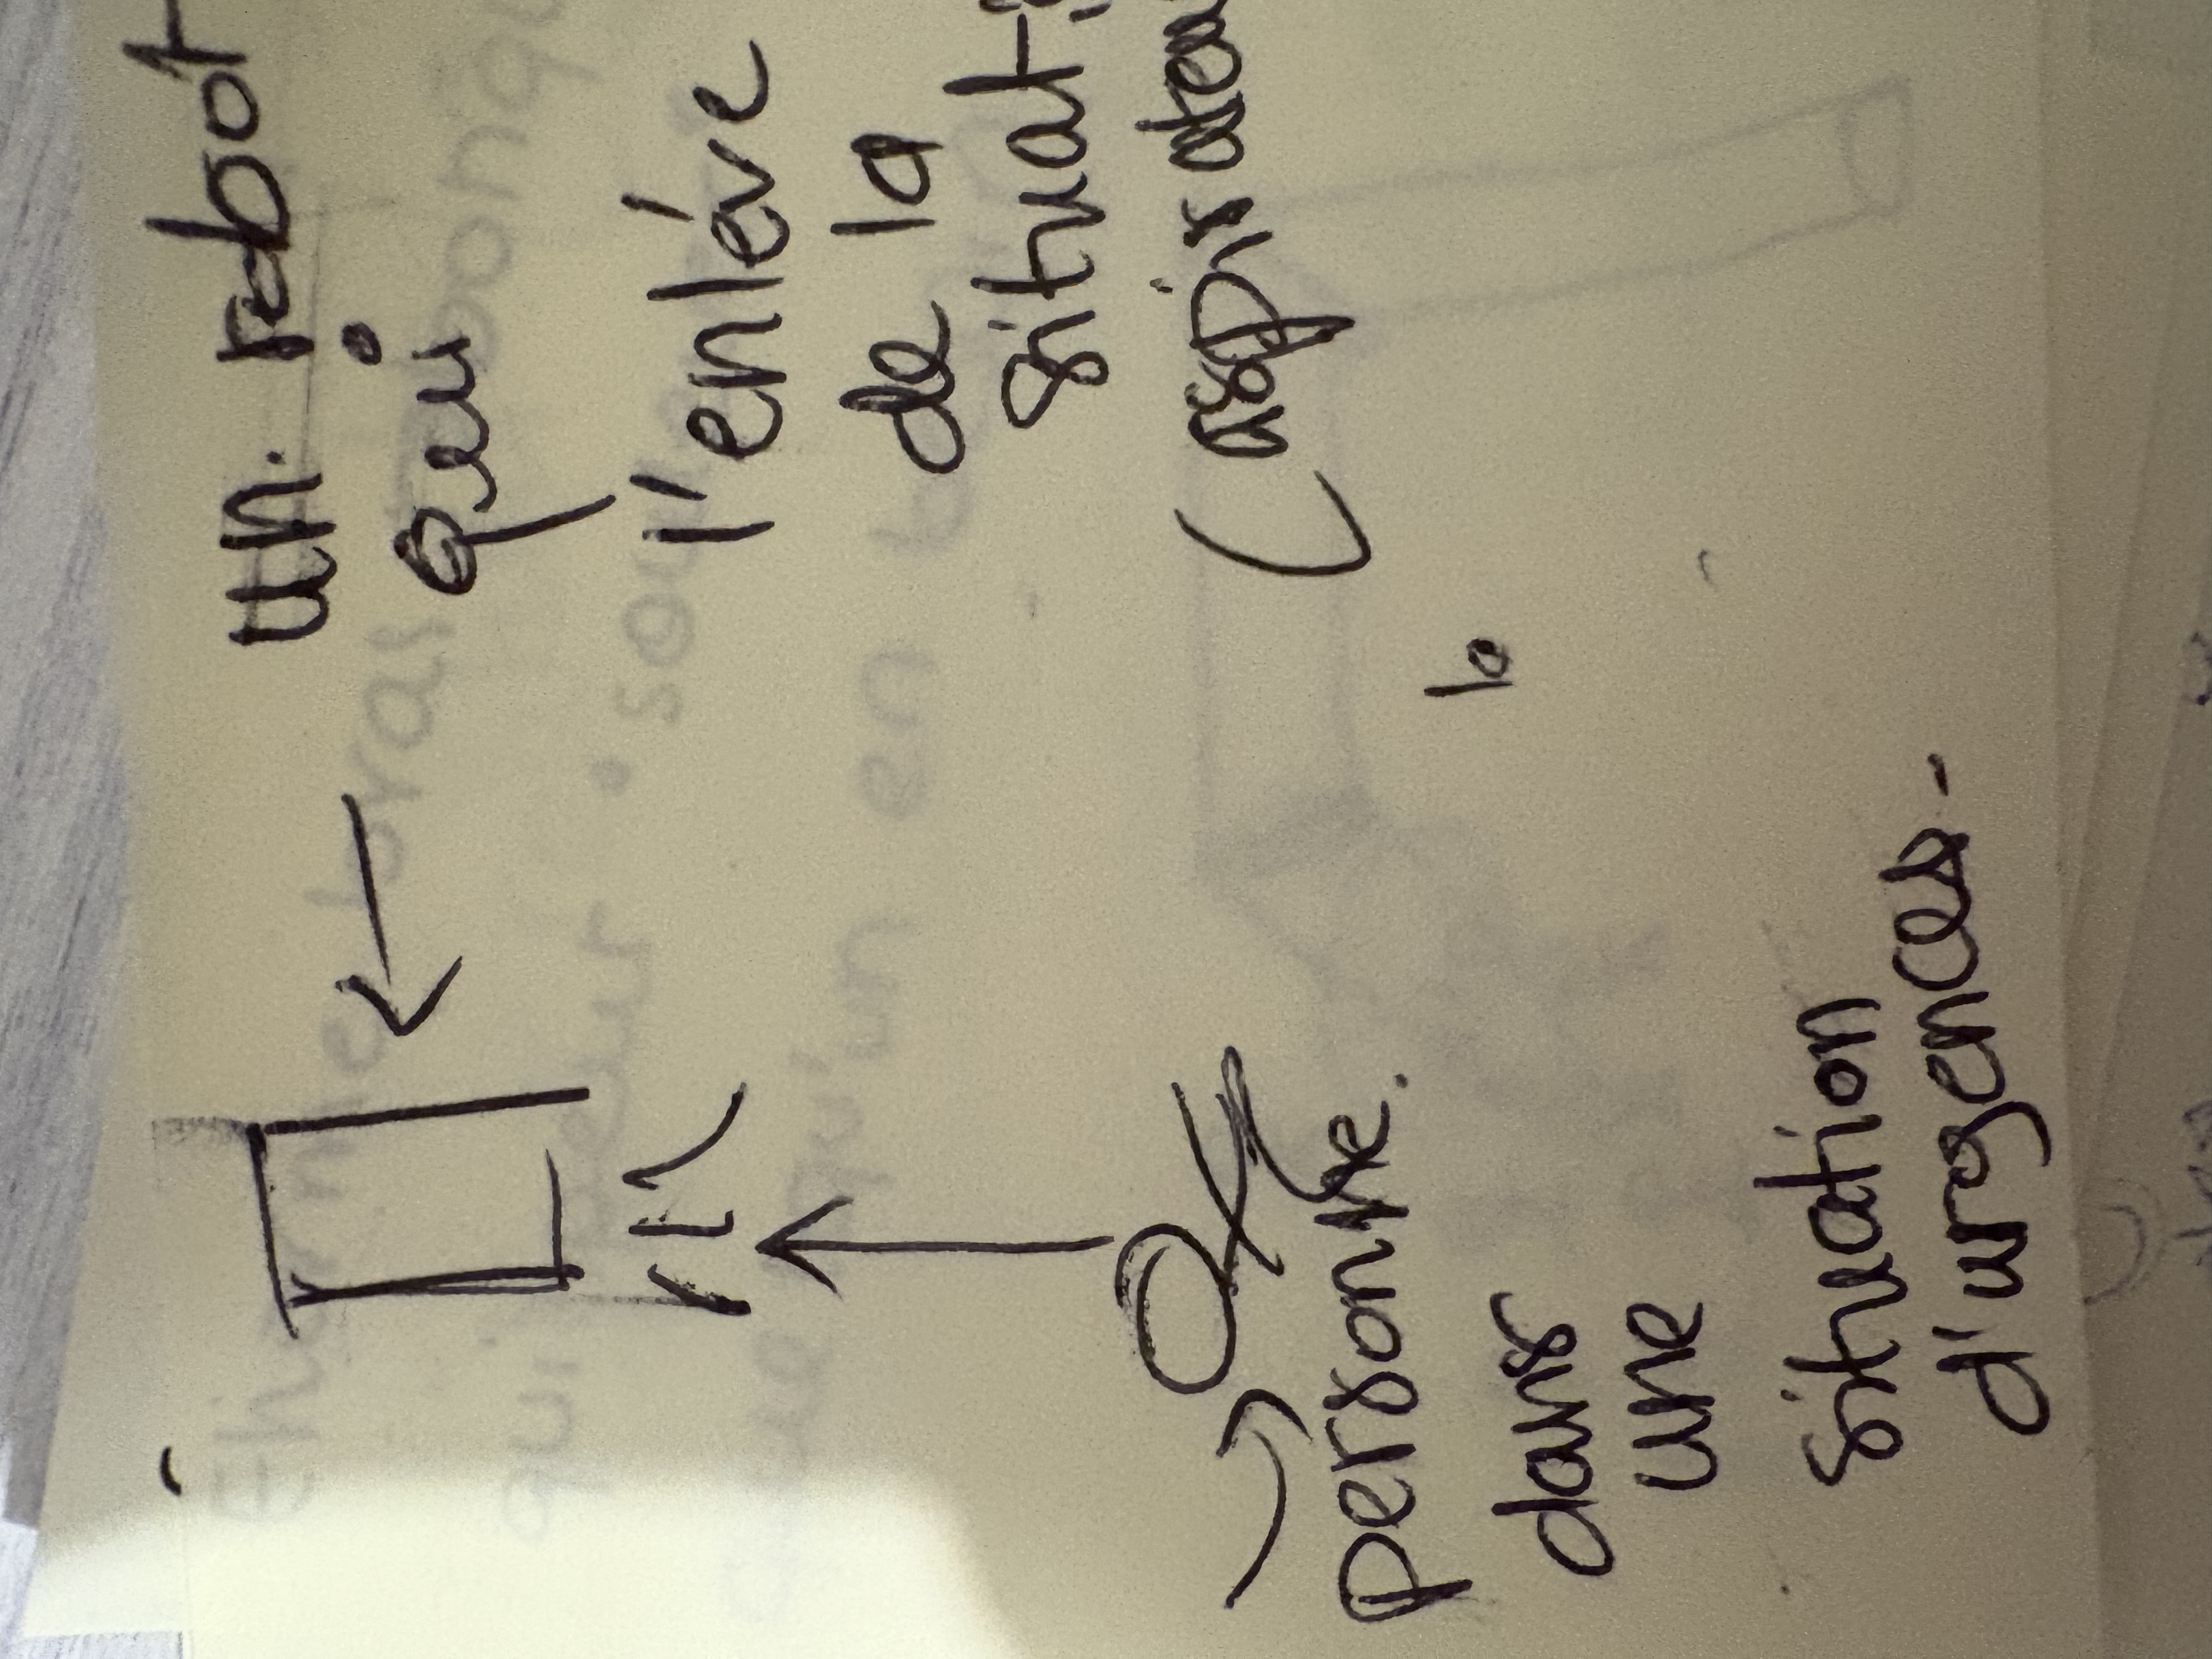 un robot
qui
l'enléve
de la
situat
(aspirateu
personne.
dans
une
situation
d'urgences-